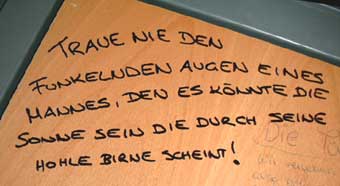 TRAUE NIE DEN
FUNKELNDEN AUGEN EINES
MANNES, DEN ES KÖNNTE DIE
SONNE SEIN DIE DURCH SEINE
HOHLE BIRNE SCHEINT!
Die